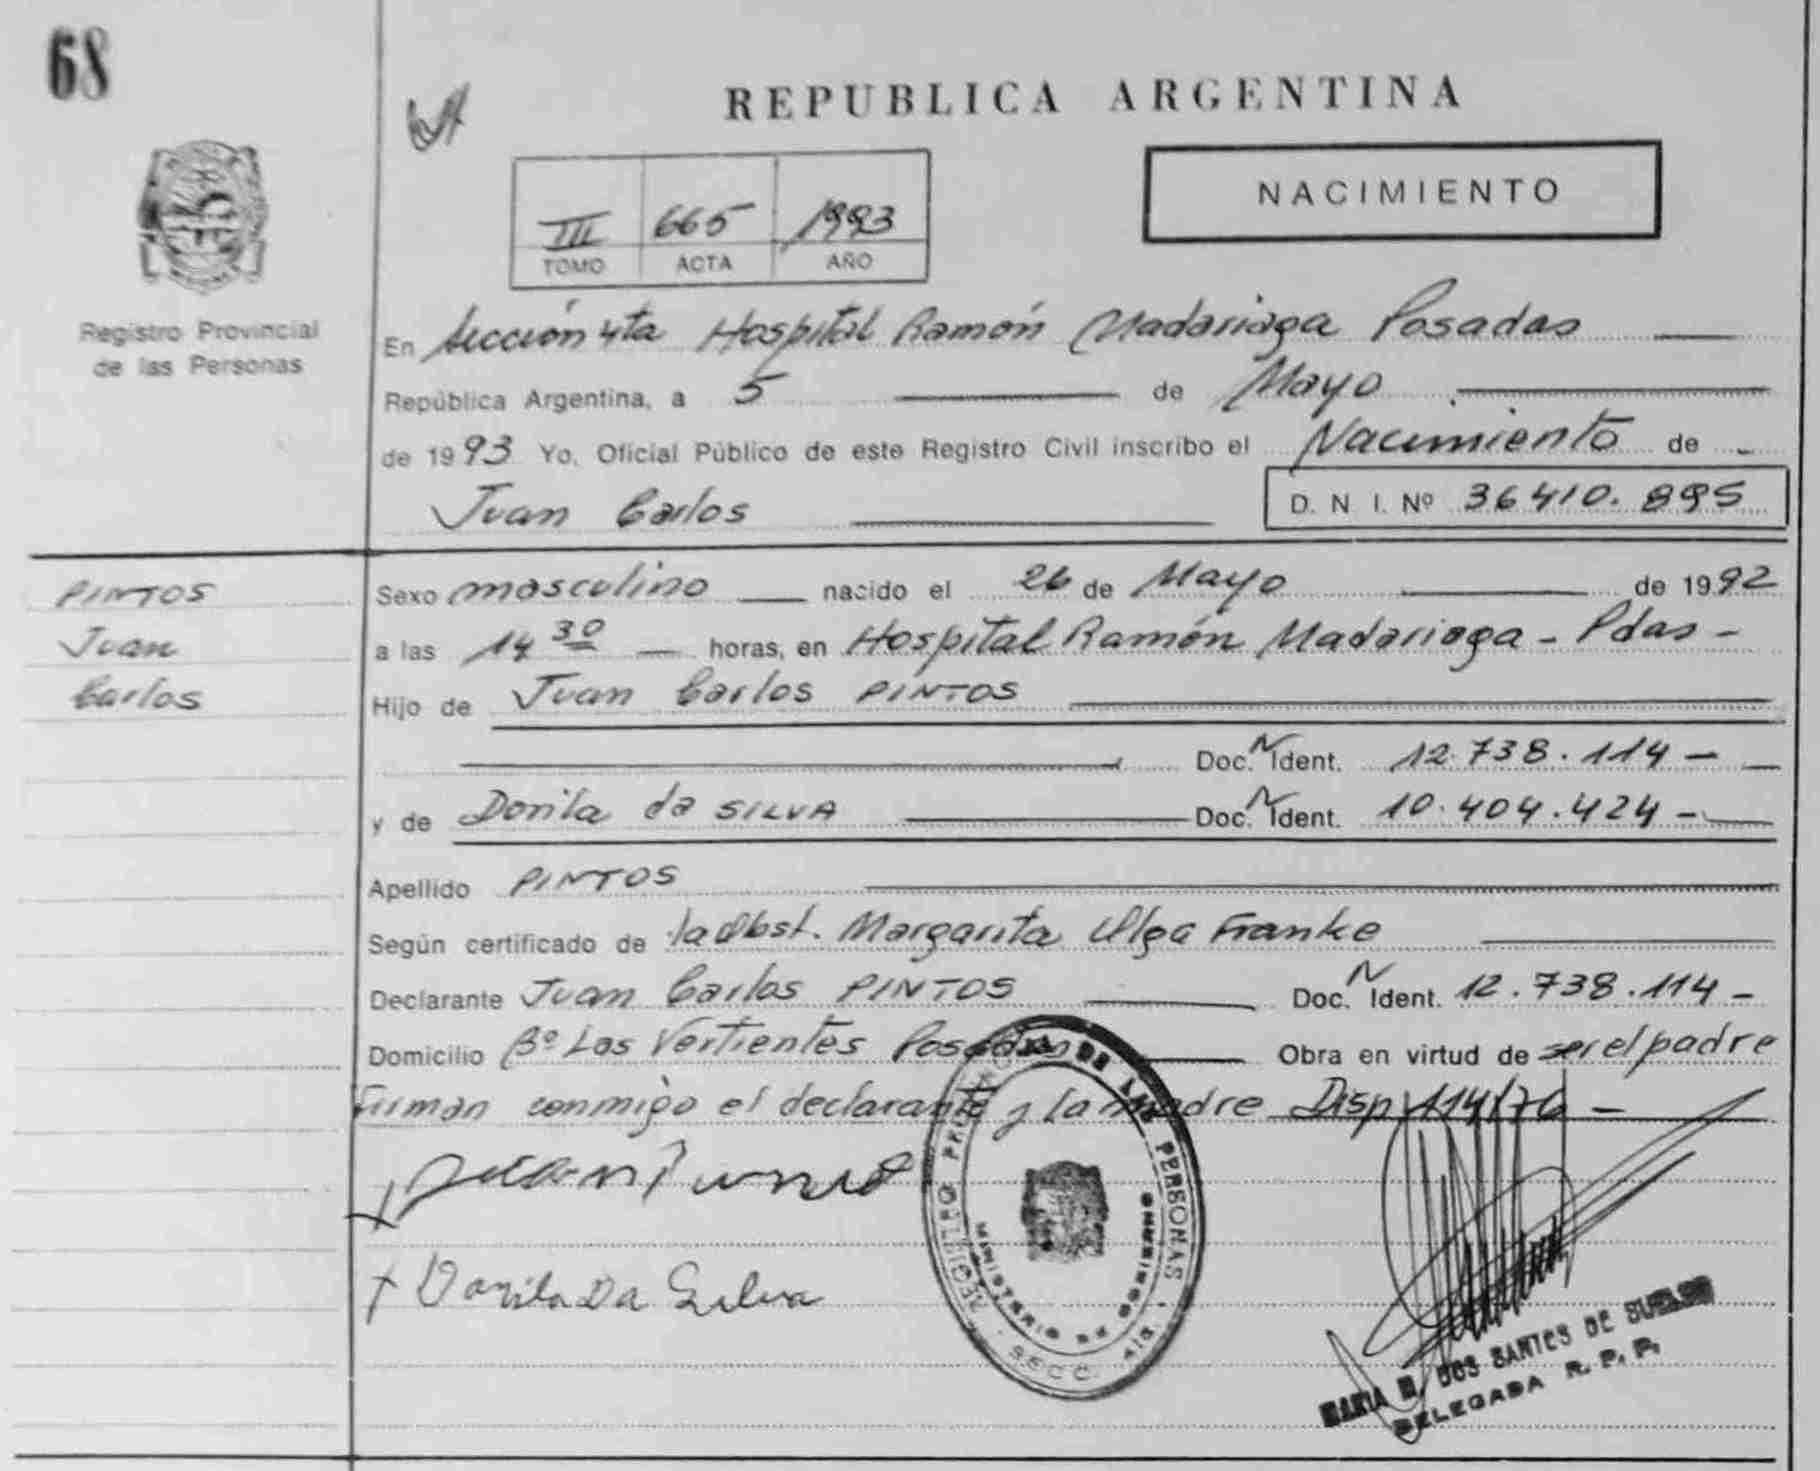 68
REPUBLICA ARGENTINA
NACIMIENTO
III 665 1993
TOMO ACTA AÑO
Registro Provincial
de las Personas
En Sección 4ta Hospital Ramón Madariaga Posadas
República Argentina, a 5 de Mayo
de 1993 Yo, Oficial Público de este Registro Civil inscribo el Nacimiento de
Juan Carlos D. N. I. Nº 36410.895
PINTOS
Juan
Carlos
Sexo masculino nacido el 26 de Mayo de 1992
a las 14 30 horas, en Hospital Ramón Madariaga - Pdas -
Hijo de Juan Carlos PINTOS
Doc. N Ident. 12.738.114 -
y de Dorila da SILVA Doc. N Ident. 10.404.424 -
Apellido PINTOS
Según certificado de la Obst. Margarita Olga Franke
Declarante Juan Carlos PINTOS Doc. N Ident. 12.738.114 -
Domicilio Bº Las Vertientes Posadas Obra en virtud de ser el padre
Firman conmigo el declarante y la madre Disp 114/76 -
Dorila Da Silva
REGISTRO PROVINCIAL DE LAS PERSONAS
MINISTERIO DE GOBIERNO
SECC. 4ta
MARIA DOS SANTOS DE
DELEGADA R. P. P.